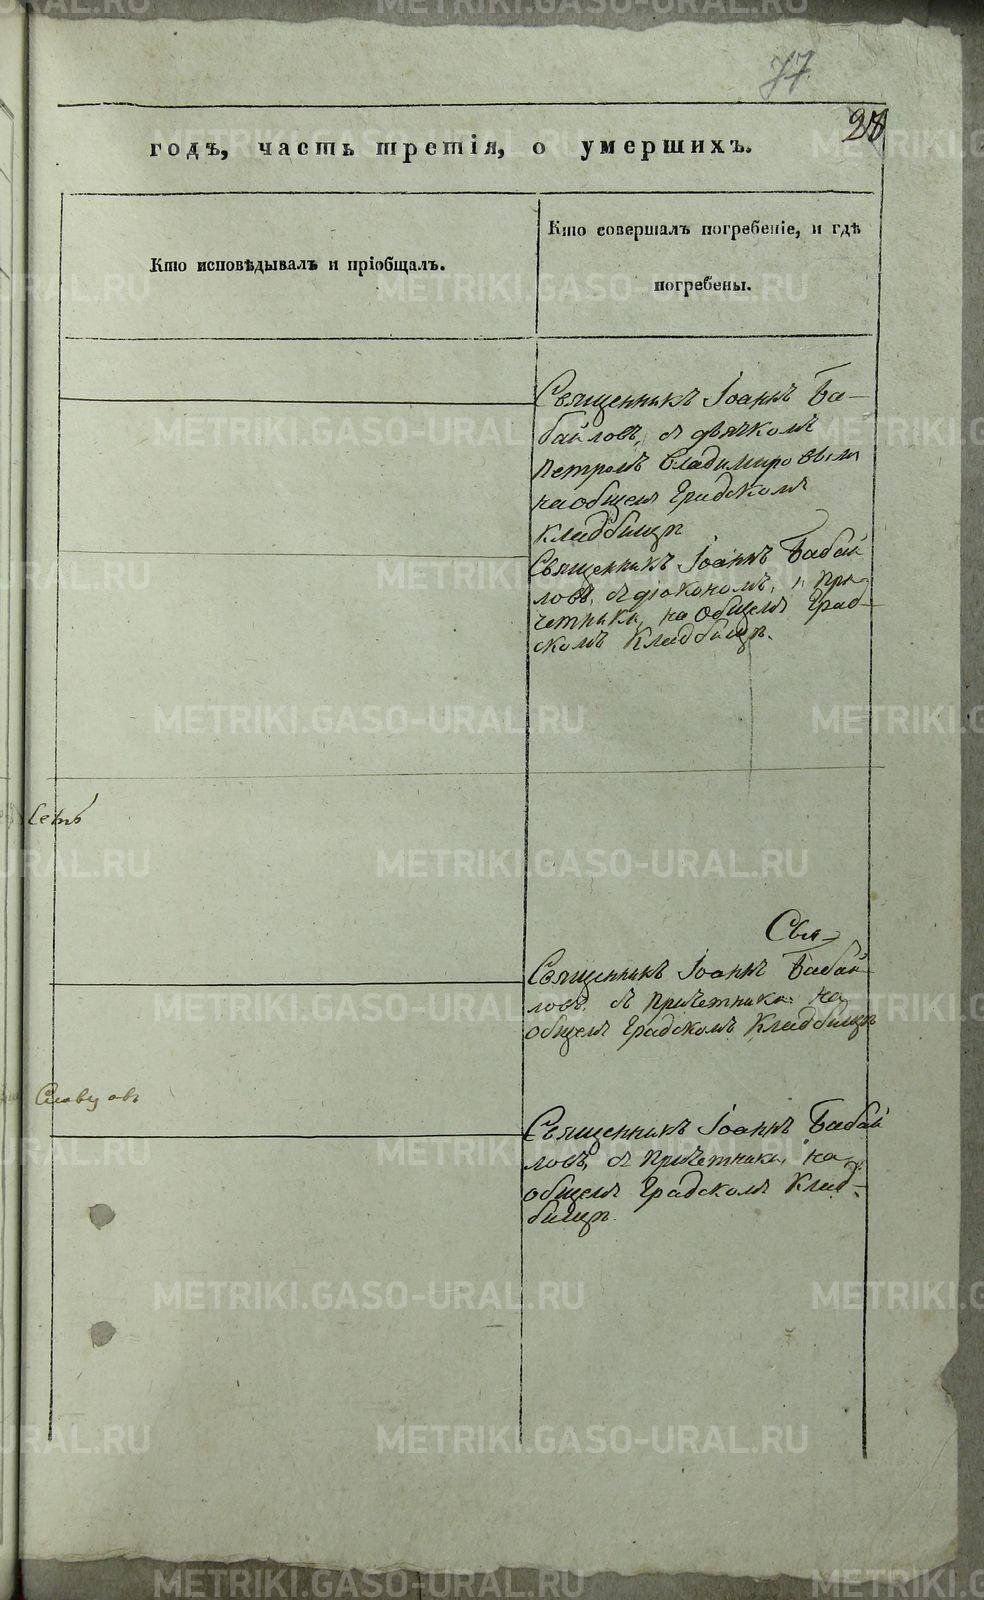 77
28
годъ, часть третія, о умершихъ.
Кто исповѣдывалъ и пріобщалъ.
Кто совершалъ погребеніе, и гдѣ
погребены.
Священникъ Іоаннъ Ба-
байловъ, съ дьячкомъ
Петромъ Владимировымъ
на общемъ Градскомъ
Кладбищѣ
Священникъ Іоаннъ Бабай
ловъ, съ діакономъ, и при
четники, на общемъ Град-
скомъ Кладбищѣ.
Свя-
Священникъ Іоаннъ Бабай-
ловъ, съ причетники на
общемъ Градскомъ Кладбищѣ
Словцовъ
Священникъ Іоаннъ Бабай
ловъ, съ Причетники, на
общемъ Градскомъ Клад-
бищѣ.
METRIKI.GASO-URAL.RU